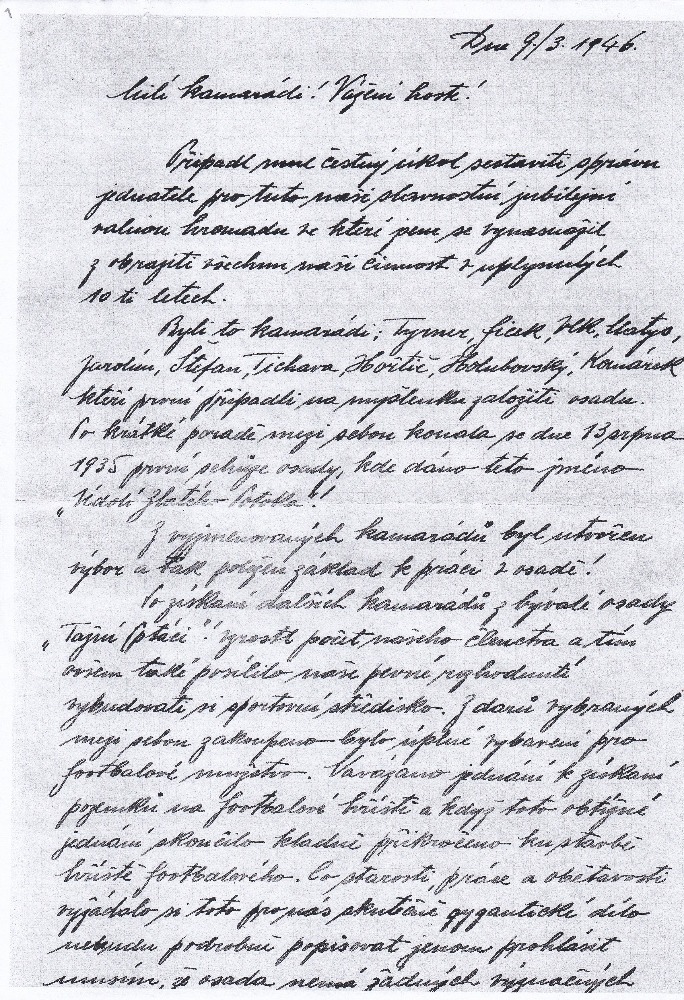 Dne 9./3. 1946.
Milí kamarádi! Vážení hosté!
Připadl mně čestný úkol sestaviti zprávu
jednatele pro tuto naši slavnostní jubilejní
valnou hromadu ve které jsem se vynasnažil
zobraziti všechnu naši činnost v uplynulých
10ti letech.
Byli to kamarádi: Tyrner, Ficek, Vlk, Matys,
Jarolím, Štěpan, Tichava, Hořtič, Holubovský, Komárek
kteří první připadli na myšlenku založiti osadu.
Po krátké poradě mezi sebou konala se dne 13 srpna
1935 první schůze osady, kde dáno této jméno
„Údolí Zlatého Potoka"!
Z vyjmenovaných kamarádů byl utvořen
výbor a tak položen základ k práci v osadě!
Po získání dalších kamarádů z bývalé osady
„Tažní Ptáci"! vzrostl počet našeho členstva a tím
ovšem také posílilo naše pevné rozhodnutí
vybudovati si sportovní středisko. Z darů vybraných
mezi sebou zakoupeno bylo úplné vybavení pro
footbalové mužstvo. Navázáno jednání k získání
pozemků na footbalové hřiště a když toto obtížné
jednání skončilo kladně přikročeno ku stavbě
hřiště footbalového. Co starostí, práce a obětavosti
vyžádalo si toto pro nás skutečně gygantické dílo
nebudu podrobně popisovat jenom prohlásit
musím, že osada nemá žádných význačných